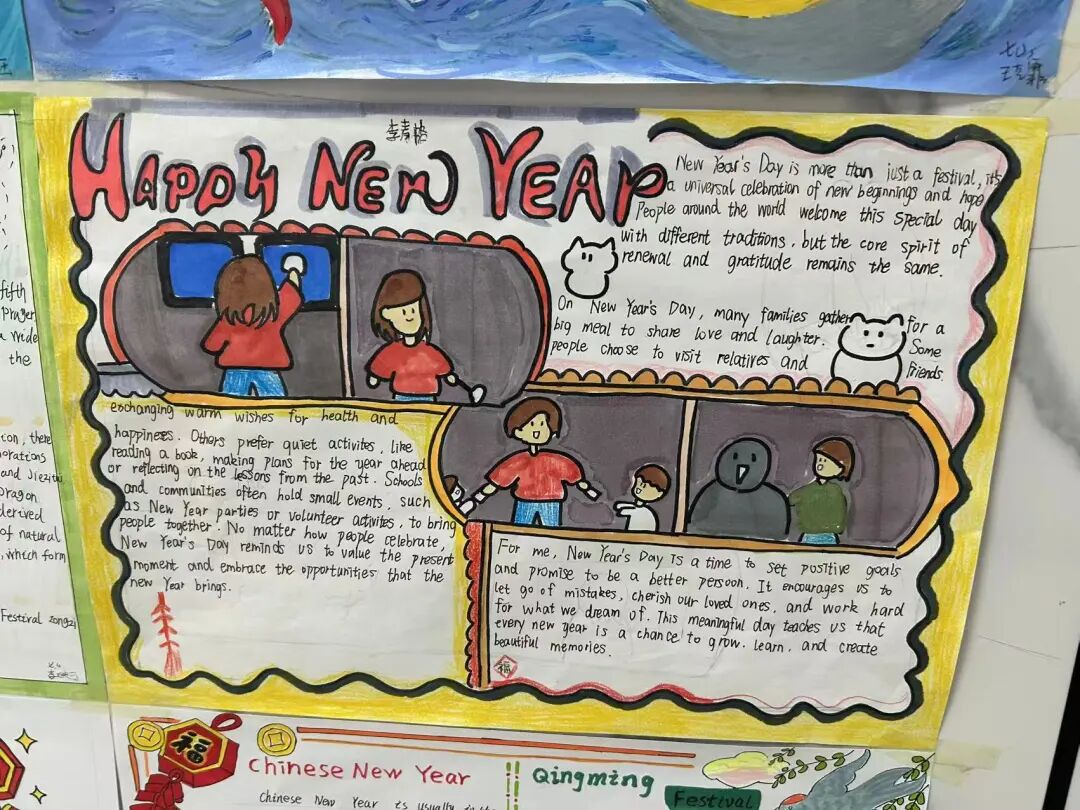 HAPPY NEW YEAR
New Year's Day is more than just a festival, it's
a universal celebration of new beginnings and hope
People around the world welcome this special day
with different traditions, but the core spirit of
renewal and gratitude remains the same.
On New Year's Day, many families gather for a
big meal to share love and laughter. Some
people choose to visit relatives and friends.
exchanging warm wishes for health and
happiness. Others prefer quiet activites, like
reading a book, making plans for the year ahead
or reflecting on the lessons from the past. Schools
and communities often hold small events, such
as New Year parties or volunteer activites, to bring
people together. No matter how people celebrate,
New Year's Day reminds us to value the present
moment and embrace the opportunities that the
new Year brings.
For me, New Year's Day is a time to set positive goals
and promise to be a better persoon. It encourages us to
let go of mistakes, cherish our loved ones, and work hard
for what we dream of. This meaningful day teaches us that
every new year is a chance to grow. learn, and create
beautiful memories.
福
fifth
Prayer
a wide
the
there
orations
and Jiezitui
Dragon
derived
of natural
which form
Festival zongzi
福
Chinese New Year
Chinese New Year is usually in the
Qingming
Festival